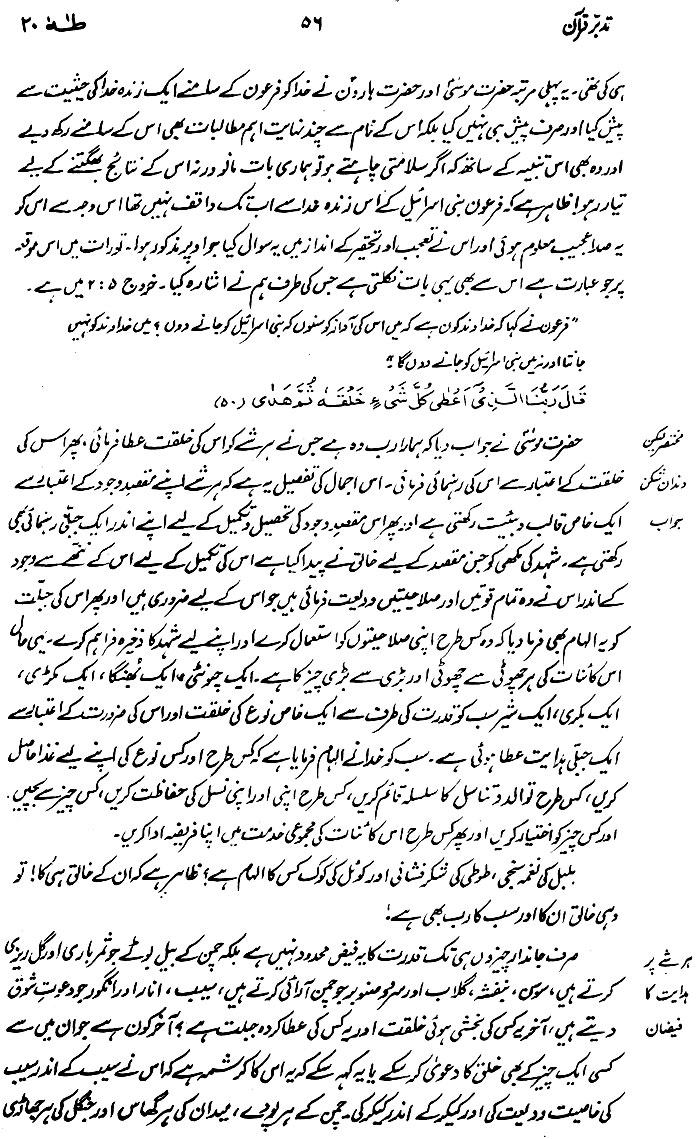 تدبّرِ قرآن ۵۶ طٰهٰ ۲۰
ہی کی تھی۔ یہ پہلی مرتبہ حضرت موسیٰؑ اور حضرت ہارونؑ نے خدا کو فرعون کے سامنے ایک زندہ خدا کی حیثیت سے
پیش کیا اور صرف پیش ہی نہیں کیا بلکہ اس کے نام سے چند نہایت اہم مطالبات بھی اس کے سامنے رکھ دیے
اور وہ بھی اس تنبیہ کے ساتھ کہ اگر سلامتی چاہتے ہو تو ہماری بات مانو ورنہ اس کے نتائج بھگتنے کے لیے
تیار رہو! ظاہر ہے کہ فرعون بنی اسرائیل کے اس زندہ خدا سے اب تک واقف نہیں تھا اس وجہ سے اس کو
یہ صدا عجیب معلوم ہوئی اور اس نے تعجب اور تحقیر کے انداز میں یہ سوال کیا جو اوپر مذکور ہوا۔ تورات میں اس موقعہ
پر جو عبارت ہے اس سے بھی یہی بات نکلتی ہے جس کی طرف ہم نے اشارہ کیا۔ خروج ۵:۲ میں ہے۔
"فرعون نے کہا کہ خداوند کون ہے کہ میں اس کی آواز کو سنوں کہ بنی اسرائیل کو جانے دوں؟ میں خداوند کو نہیں
جانتا اور نہ میں بنی اسرائیل کو جانے دوں گا۔"
قَالَ رَبُّنَا الَّذِیْٓ اَعْطٰی کُلَّ شَیْءٍ خَلْقَهٗ ثُمَّ هَدٰی (۵۰)
مختصر لیکن حضرت موسیٰؑ نے جواب دیا کہ ہمارا رب وہ ہے جس نے ہر شے کو اس کی خلقت عطا فرمائی، پھر اس کی
دندان شکن خلقت کے اعتبار سے اس کی رہنمائی فرمائی۔ اس اجمال کی تفصیل یہ ہے کہ ہر شے اپنے مقصدِ وجود کے اعتبار سے
جواب ایک خاص قالب و ہیئت رکھتی ہے اور پھر اس مقصدِ وجود کی تحصیل و تکمیل کے لیے اپنے اندر ایک جبلی رہنمائی بھی
رکھتی ہے۔ شہد کی مکھی کو جس مقصد کے لیے خالق نے پیدا کیا ہے اس کی تکمیل کے لیے اس کے ننھے سے وجود
کے اندر اس نے وہ تمام قوتیں اور صلاحیتیں ودیعت فرمائی ہیں جو اس کے لیے ضروری ہیں اور پھر اس کی جبلت
کو یہ الہام بھی فرما دیا کہ وہ کس طرح اپنی صلاحیتوں کو استعمال کرے اور اپنے لیے شہد کا ذخیرہ فراہم کرے۔ یہی حال
اس کائنات کی ہر چھوٹی سے چھوٹی اور بڑی سے بڑی چیز کا ہے۔ ایک چونٹی، ایک بھنگا، ایک مکڑی،
ایک بکری، ایک شیر سب کو قدرت کی طرف سے ایک خاص نوع کی خلقت اور اس کی ضرورت کے اعتبار سے
ایک جبلی ہدایت عطا ہوئی ہے۔ سب کو خدا نے الہام فرمایا ہے کہ کس طرح اور کس نوع کی اپنے لیے غذا حاصل
کریں، کس طرح توالد و تناسل کا سلسلہ قائم کریں، کس طرح اپنی اور اپنی نسل کی حفاظت کریں، کس چیز سے بچیں
اور کس چیز کو اختیار کریں اور پھر کس طرح اس کائنات کی مجموعی خدمت میں اپنا فریضہ ادا کریں۔
بلبل کی نغمہ سنجی، طوطی کی شکر فشانی اور کوئل کی کوک کس کا الہام ہے؟ ظاہر ہے کہ ان کے خالق ہی کا! تو
وہی خالق ان کا اور سب کا رب بھی ہے!
ہر شے پر صرف جاندار چیزوں ہی تک قدرت کا یہ فیض محدود نہیں ہے بلکہ چمن کے بیل بوٹے جو ثمر باری اور گل ریزی
ہدایت کا کرتے ہیں، سوسن، بنفشہ، گلاب اور سرو صنوبر جو چمن آرائی کرتے ہیں، سیب، انار اور انگور جو دعوتِ شوق
فیضان دیتے ہیں، آخر یہ کس کی بخشی ہوئی خلقت اور یہ کس کی عطا کردہ جبلت ہے؟ آخر کون ہے جو ان میں سے
کسی ایک چیز کے بھی خلق کا دعویٰ کر سکے یا یہ کہہ سکے کہ یہ اس کا کرشمہ ہے کہ اس نے سیب کے اندر سیب
کی خاصیت ودیعت کی اور کیکر کے اندر کیکر کی۔ چمن کے ہر پودے، میدان کی ہر گھاس اور جنگل کی ہر جھاڑی